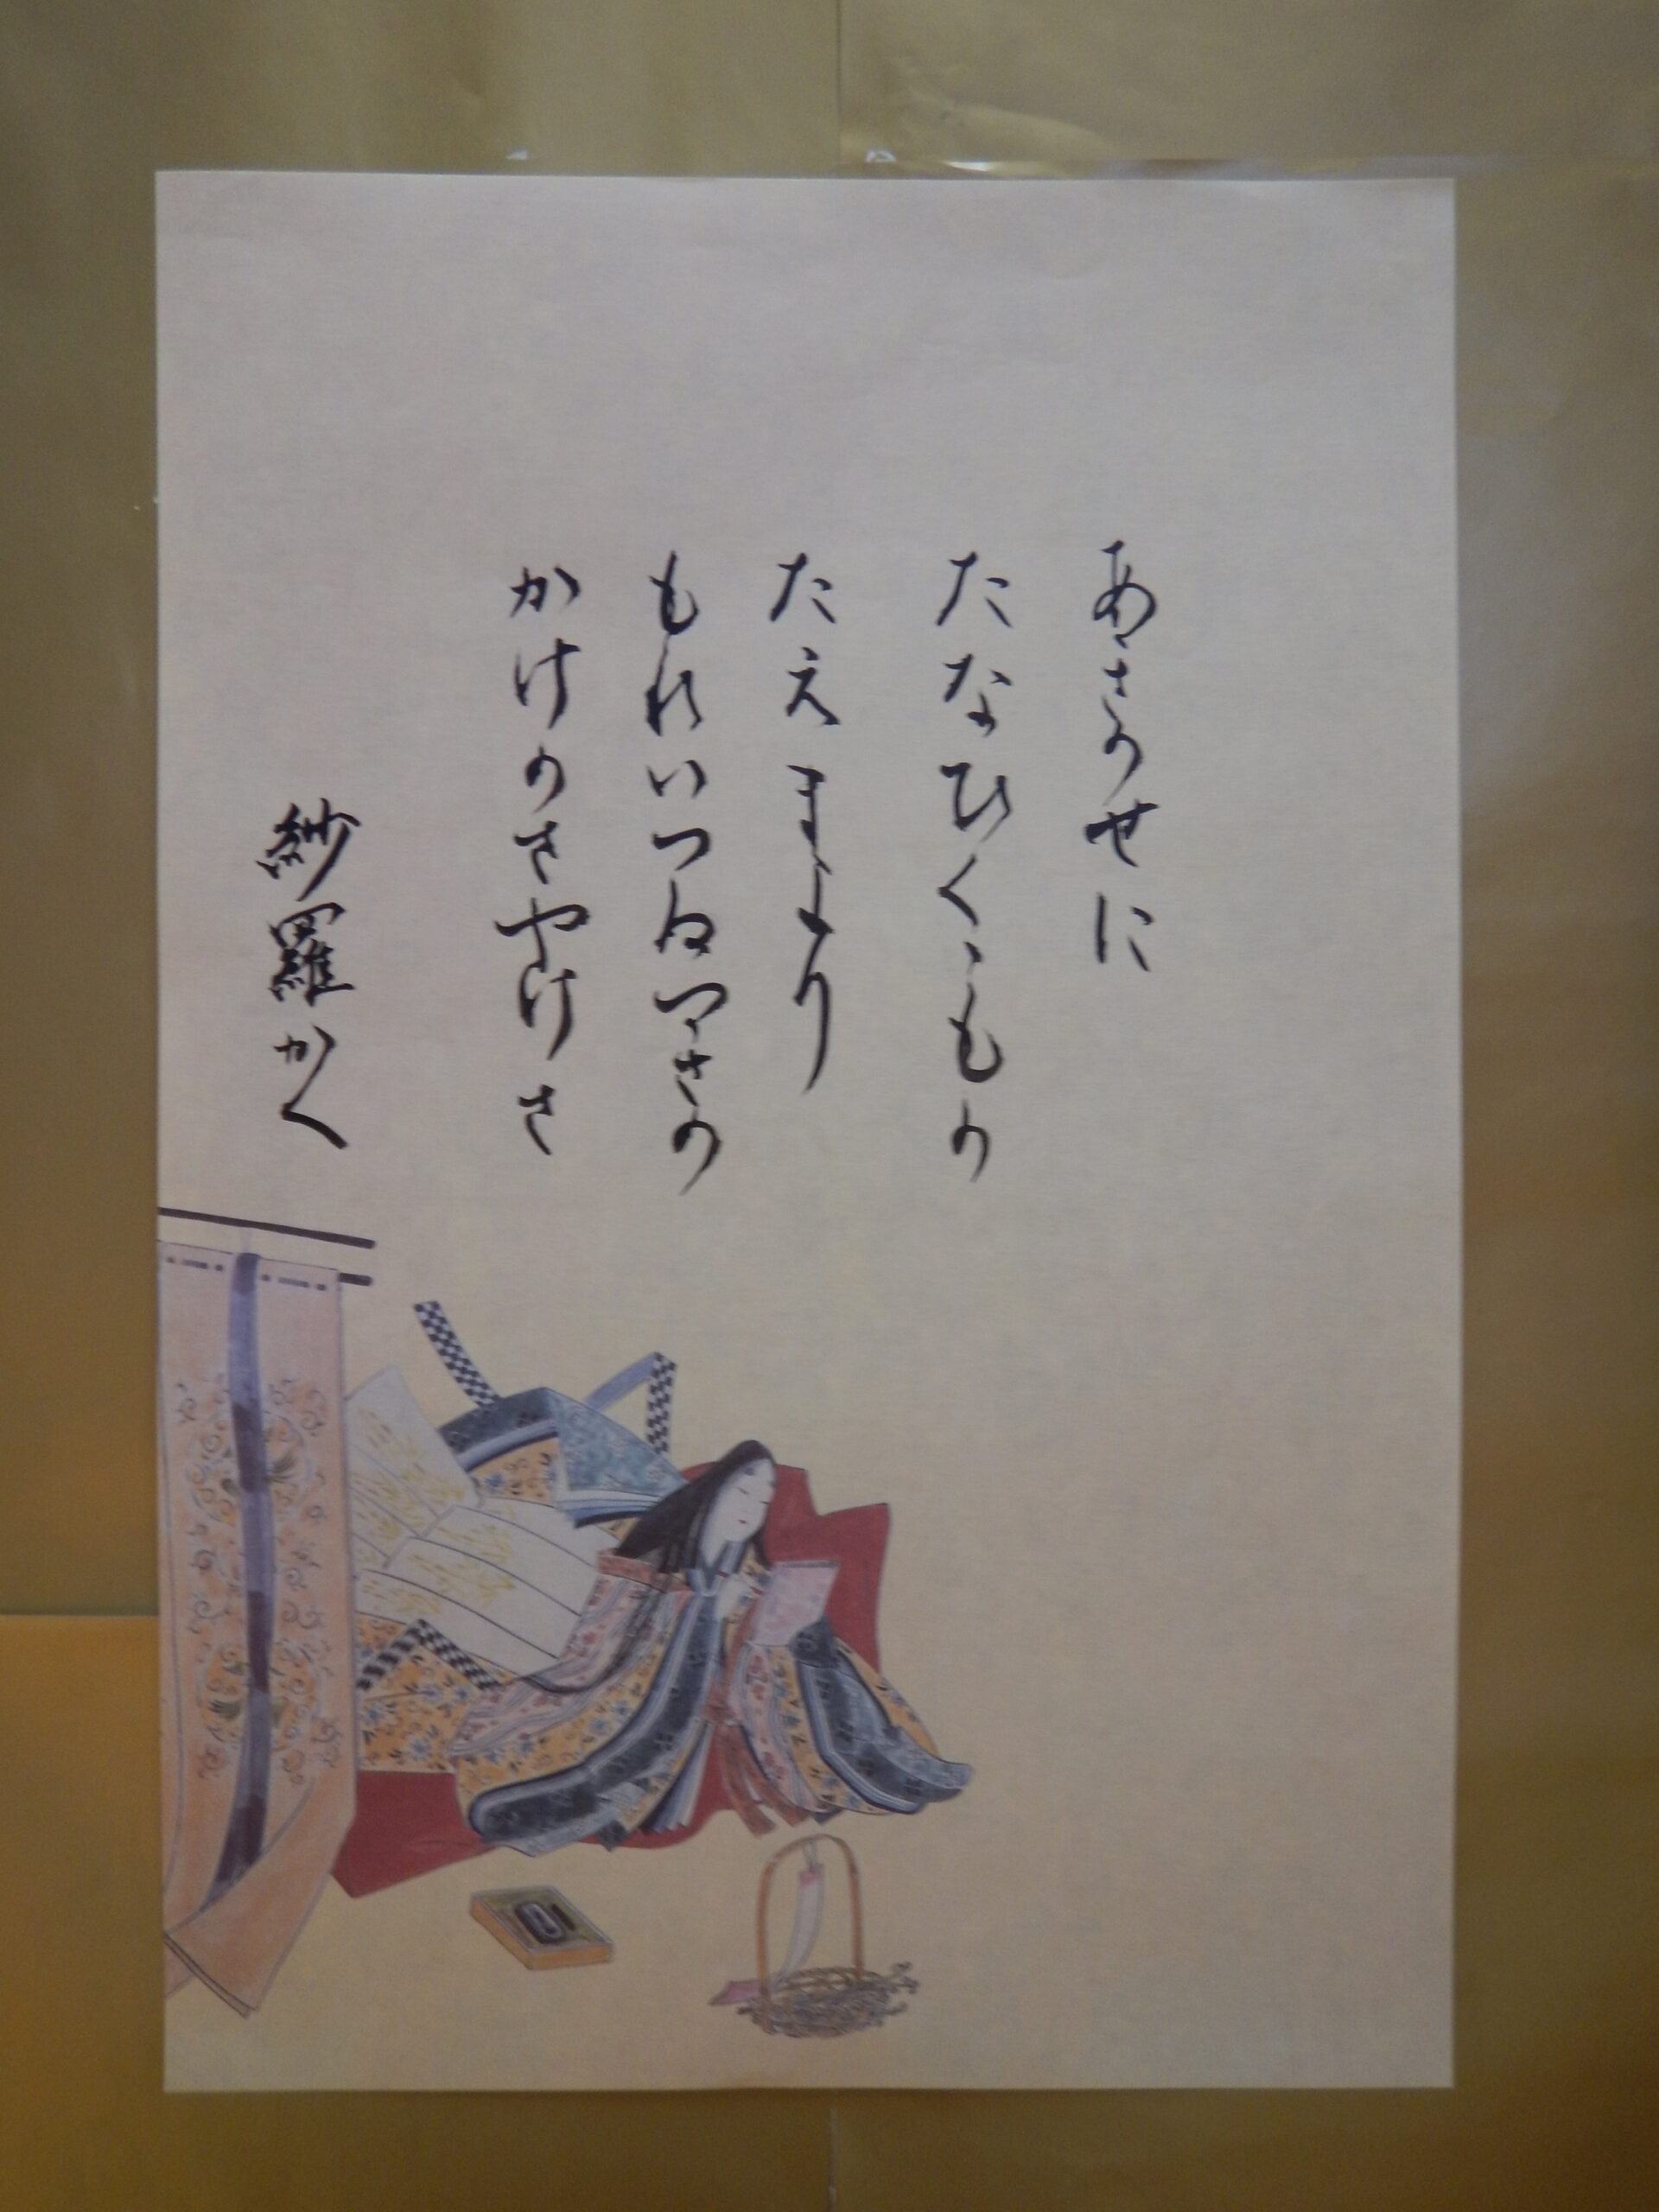 あきかせに
たなひくゝもの
たえまより
もれいつるつきの
かけのさやけさ
紗羅かく